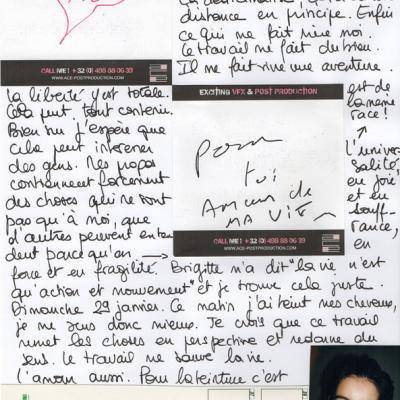 distance en principe. Enfin
ce qui ne fait rire moi.
Le travail me fait du bien.
Il me fait vivre une aventure.
CALL ME! +32 (0) 498 88 06 39
WWW.ACE-POSTPRODUCTION.COM
EXCITING VFX & POST PRODUCTION
Pour
toi
Amour de
MA VIE
CALL ME! +32 (0) 498 88 06 39
WWW.ACE-POSTPRODUCTION.COM
la liberté y est totale.
Cela peut tout contenir.
Bien sûr j'espère que
cela peut intéresser
des gens. Mes propos
contiennent forcément
des choses qui ne sont
pas qu'à moi, que
d'autres peuvent enten
dent parce qu'en →
est de
la même
race!
↑
l'univer
salité,
en joie
et en
souff-
rance,
en
force et en fragilité. Brigitte m'a dit "la vie n'est
qu'action et mouvement" et je trouve cela juste.
Dimanche 29 janvier. Ce matin j'ai teint mes cheveux,
je me sens donc mieux. Je crois que ce travail
remet les choses en perspective et redonne du
sens. Le travail me sauve la vie.
L'amour aussi. Pour la teinture c'est